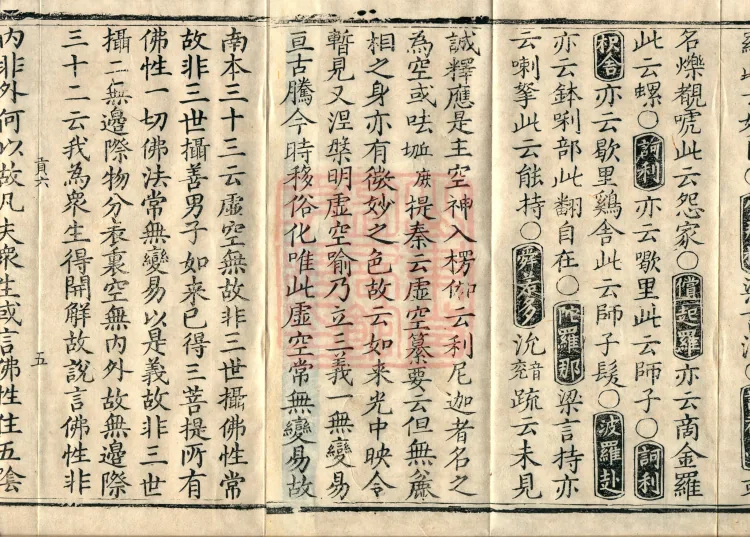 名爍覩嘷此云怨家○償起羅亦云商金羅
此云螺○訶利亦云歇里此云師子○訶利
枳舍亦云歇里雞舍此云師子髮○波羅赴
亦云鉢唎部此翻自在○陀羅那梁言持亦
云喇拏此云能持○舜若多沇音疏云未見
誠釋應是主空神入楞伽云利尼迦者名之
為空或呿𡋯庾提秦云虛空纂要云但無麤
相之身亦有微妙之色故云如來光中映令
暫見又涅槃明虛空喻乃立三義一無變易
亘古騰今時移俗化唯此虛空常無變易故
南本三十三云虛空無故非三世攝佛性常
故非三世攝善男子如來已得三菩提所有
佛性一切佛法常無變易以是義故非三世
攝二無邊際物分表裏空無內外故無邊際
三十二云我為衆生得開解故說言佛性非
貢六
五
內非外何以故凡夫衆生或言佛性住五陰